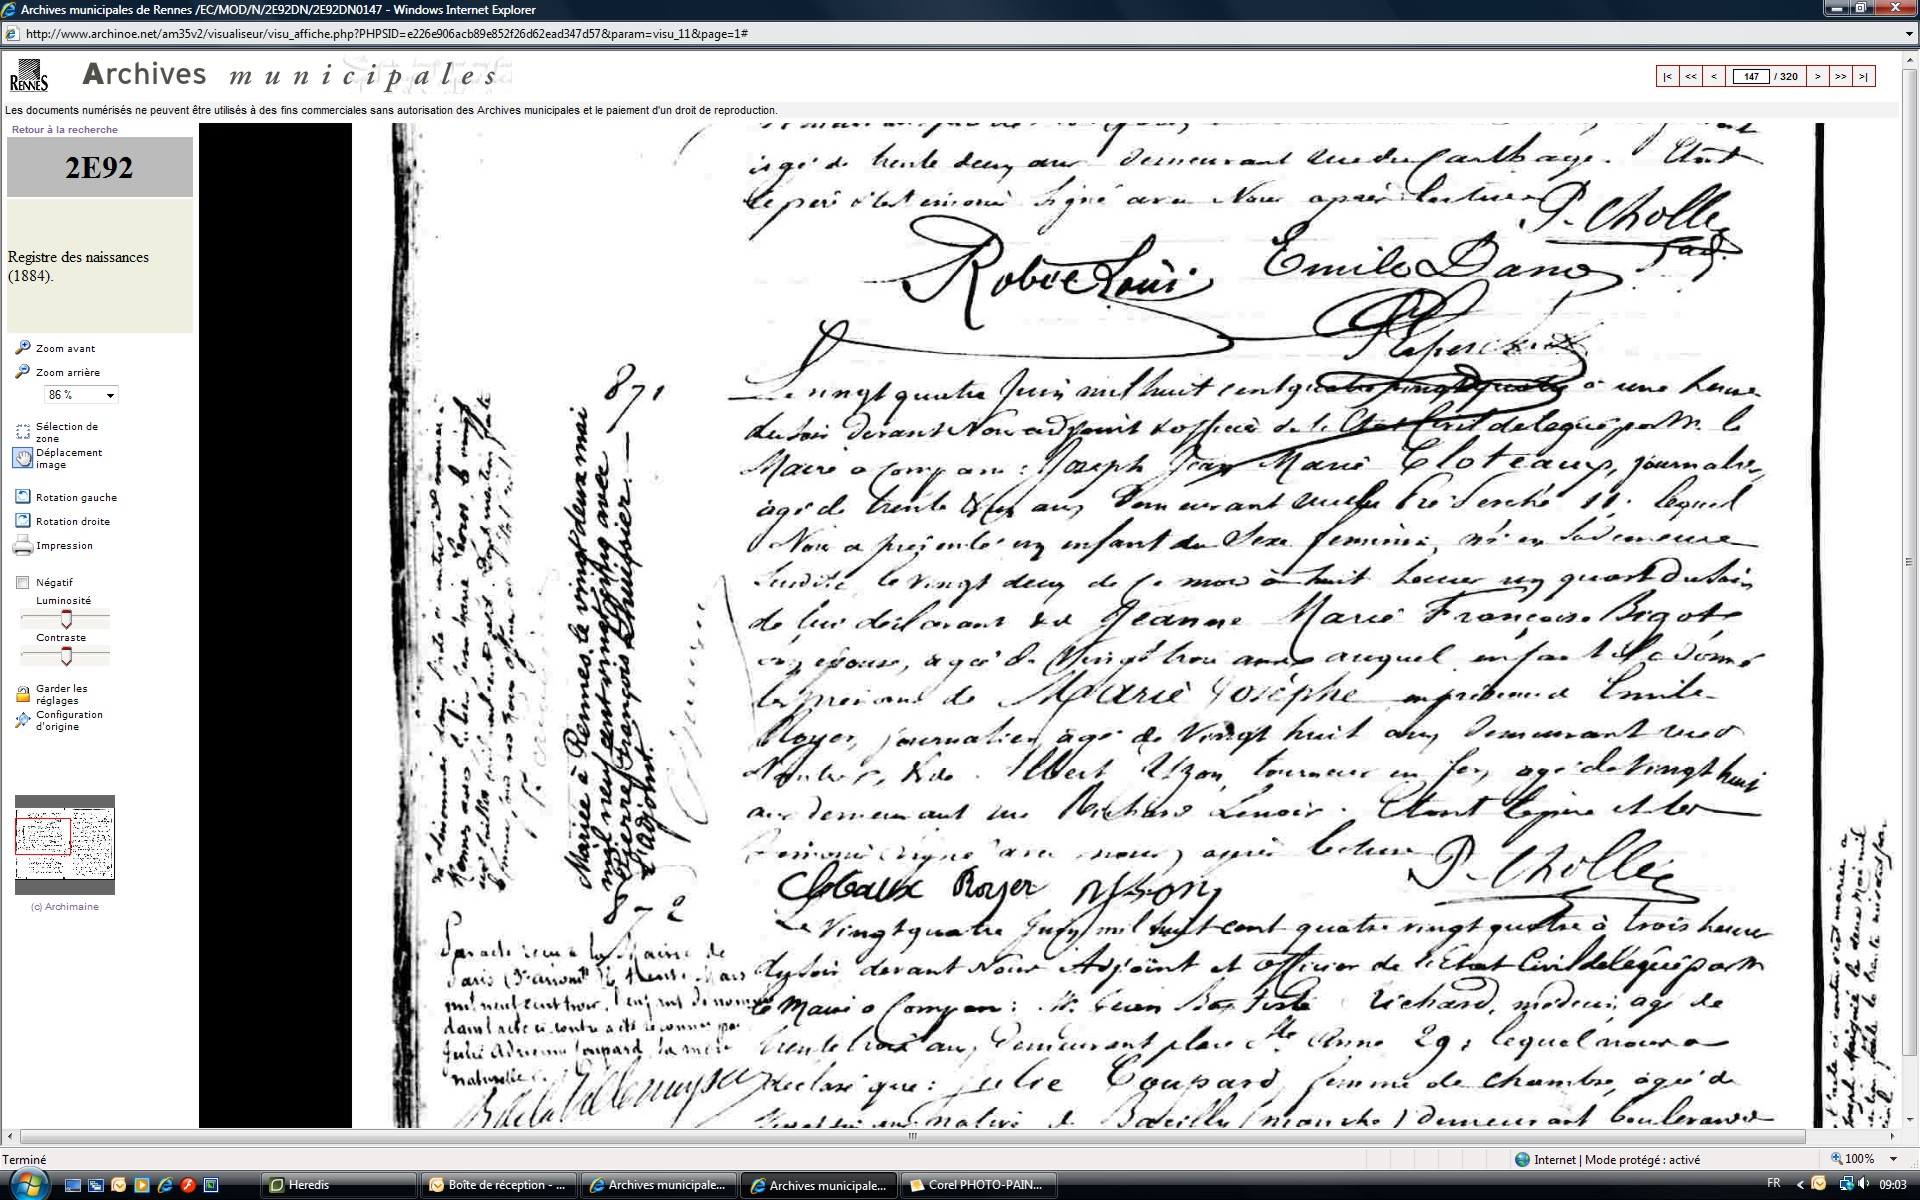 Archives municipales de Rennes /EC/MOD/N/2E92DN/2E92DN0147 - Windows Internet Explorer
http://www.archinoe.net/am35v2/visualiseur/visu_affiche.php?PHPSID=e226e906acb89e852f26d62ead347d57&param=visu_11&page=1#
RENNES Archives municipales
|< << < 147 / 320 > >> >|
Les documents numérisés ne peuvent être utilisés à des fins commerciales sans autorisation des Archives municipales et le paiement d'un droit de reproduction.
Retour à la recherche
2E92
Registre des naissances
(1884).
Zoom avant
Zoom arrière
86 %
Sélection de
zone
Déplacement
image
Rotation gauche
Rotation droite
Impression
Négatif
Luminosité
Contraste
Garder les
réglages
Configuration
d'origine
(c) Archimaine
âgé de trente deux ans demeurant rue du Carthage. Etant
le père et les témoins signé avec Nous après lecture
P. Chollet
Robert Louis Emile Dano
871
Le vingt quatre Juin mil huit cent quatre vingt quatre à une heure
du soir devant Nous adjoint & officier de l'Etat Civil délégué par M. le
Maire a comparu : Joseph Jean Marie Cloteaux, journalier,
âgé de trente ans demeurant rue du Pré Perché 11. lequel
Nous a présenté un enfant du Sexe féminin, né en sa demeure
susdite le vingt deux de ce mois à huit heures un quart du soir
de lui déclarant & de Jeanne Marie Françoise Bigot
son épouse, âgée de Vingt trois ans auquel enfant il a donné
les prénoms de Marie Josèphe en présence de Emile
Royer, journalier, âgé de Vingt huit ans demeurant rue
Nantes, & de Albert Uzon, tourneur en fer, âgé de vingt huit
ans demeurant rue Richard Lenoir. Etant le père et les
témoins signé avec nous, après lecture
P. Chollet
Cloteaux Royer
Mariée à Rennes le vingt deux mai
mil neuf cent vingt cinq avec
Pierre François Lhuissier.
L'adjoint.
872
Le Vingt quatre Juin mil huit cent quatre vingt quatre à trois heures
du soir devant Nous Adjoint et officier de l'Etat Civil délégué par M.
le Maire a Comparu : M. Jean Baptiste Richard, médecin, âgé de
trente trois ans, demeurant place Ste Anne 29, lequel nous a
déclaré que : Julie Coupard, femme de chambre, âgée de
native de Bacilly (manche) demeurant boulevard
Par acte reçu à la Mairie de
Paris le trente Mars
mil neuf cent trois, l'enfant dénommé
dans l'acte ci contre a été reconnu par
Julie Adrienne Coupard, sa mère
naturelle.
Terminé
Internet | Mode protégé : activé
100%
Heredis
Boîte de réception - ...
Archives municipale...
Archives municipale...
Corel PHOTO-PAIN...
FR
09:03